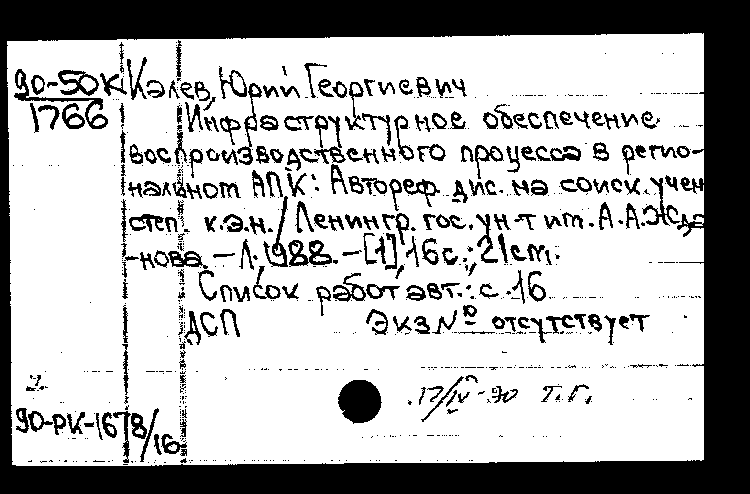 90-50К
1766
Калев, Юрий Георгиевич
Инфраструктурное обеспечение
воспроизводственного процесса в регио-
нальном АПК: Автореф. дис. на соиск. учен
степ. к.э.н./Ленингр. гос. ун-т им. А.А.Жда
-нова. – Л., 1988. – [1], 16 с.; 21 см.
Список работ авт.: с. 16
ДСП Экз № отсутствует
2.
17/IV-90 Т.Г.
90-РК-1678/16